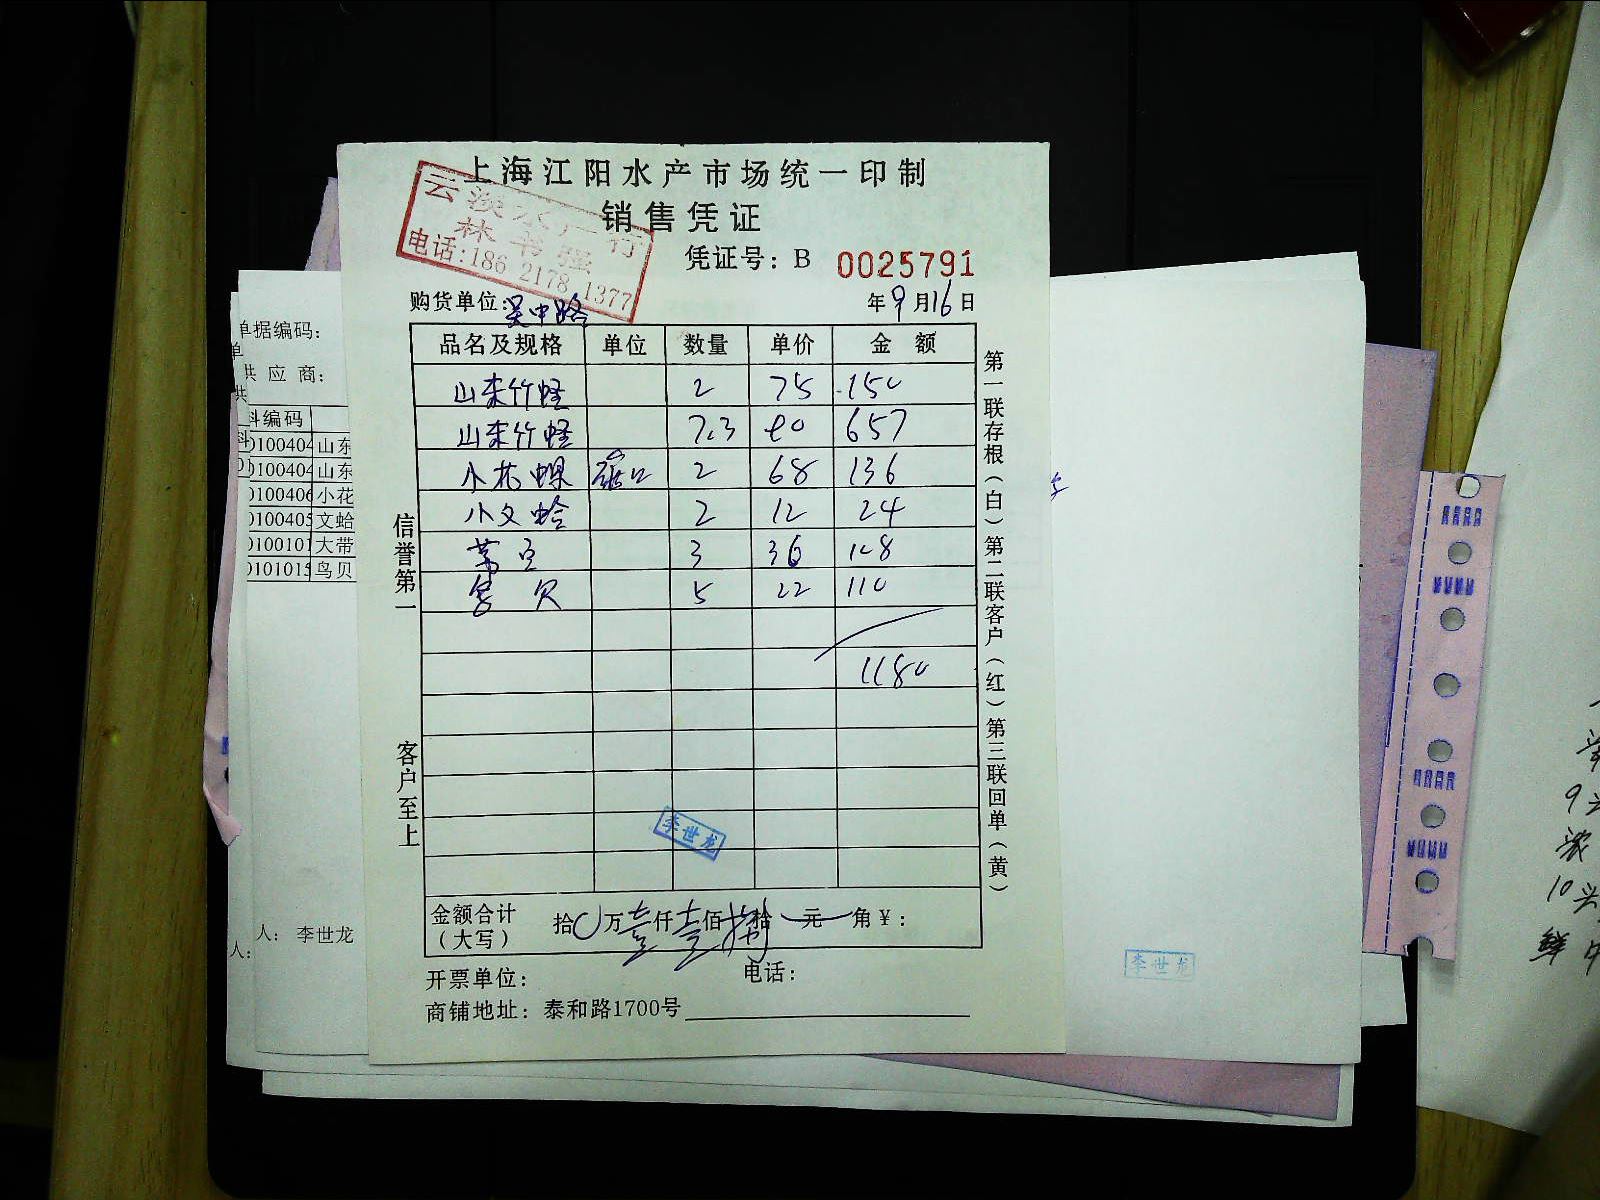 上海江阳水产市场统一印制
销售凭证
云 水产行
林书强
电话:186 2178 1377
凭证号：B 0025791
购货单位:吴中路
年9月16日
品名及规格 单位 数量 单价 金 额
山东竹蛏 2 75 150
山东竹蛏 7.3 90 657
小花螺 2 68 136
小文蛤 2 12 24
3 36 108
5 22 110
1180
信誉第一
客户至上
第一联存根(白)第二联客户(红)第三联回单(黄)
李世龙
金额合计
(大写)
拾0万壹仟壹佰捌拾 元 角￥:
开票单位:
电话:
商铺地址: 泰和路1700号
单据编码:
供 应 商:
料编码
0100404 山东
0100404 山东
0100406 小花
0100405 文蛤
0100101 大带
0101015 鸟贝
人: 李世龙
人:
李世龙
9
浓
10头
鲜